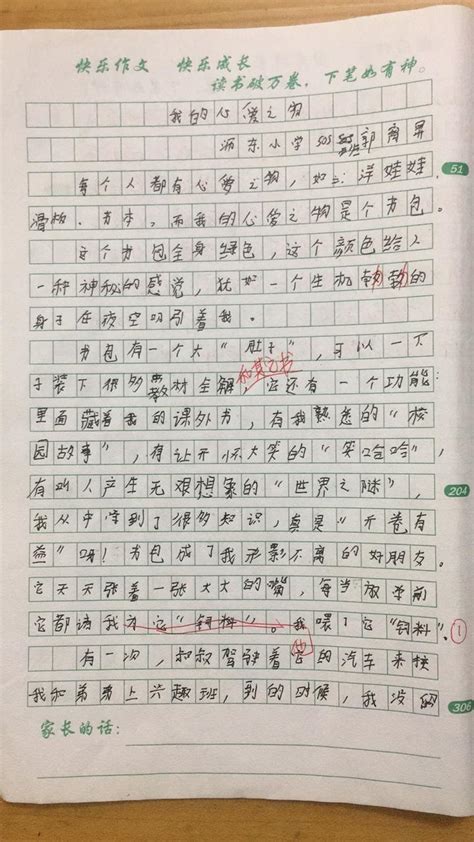 快乐作文 快乐成长
读书破万卷，下笔如有神。
我的心爱之物
沥东小学505郭商昇
每个人都有心爱之物，如：洋娃娃、
51
滑板、书本，而我的心爱之物是个书包。
这个书包全身绿色，这个颜色给人
一种神秘的感觉，犹如一个生机勃勃的
身子在夜空吸引着我。
书包有一个大“肚子”，可以一下
子装下很多教材全解，它还有一个功能：
和其它书
里面藏着我的课外书，有我熟悉的“校
园故事”，有让开怀大笑的“笑哈哈”，
有叫人产生无艰想象的“世界之谜”，
204
我从中学到了很多知识，真是“开卷有
益”呀！书包成了我形影不离的好朋友。
它天天张着一张大大的嘴，每当放学前
它都请我为它“饲料”。我喂了它“饲料”。
①
有一次，叔叔驾驶着它的汽车来接
他
我和弟弟上兴趣班，到的时候，我没的
306
家长的话：